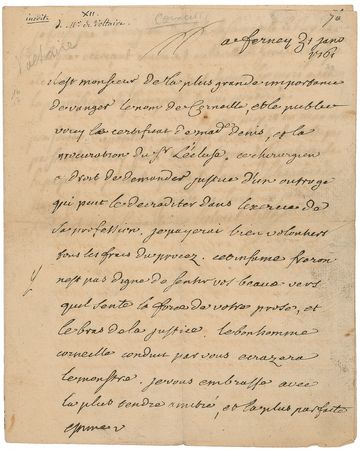 inédite
XII
Corneille
70
d. Mr. de Voltaire
Voltaire
a ferney 31 janv
1761
il est monsieur de la plus grande importance
de vanger le nom de Corneille, et le public
voicy le certificat de made denis, et la
procuration du sr Lécluse. ce chirurgien
a droit de demander justice d'un outrage
qui peut le decraditer dans l'exercice de
sa profession. je payerai bien volontiers
tous les frais du procez. cet infame freron
n'est pas digne de sentir vos beaux vers
quil sente la force de votre prose, et
le bras de la justice. le bon homme
corneille conduit par vous ecrazera
le monstre. je vous embrasse avec
la plus tendre amitié, et la plus parfaite
estime V